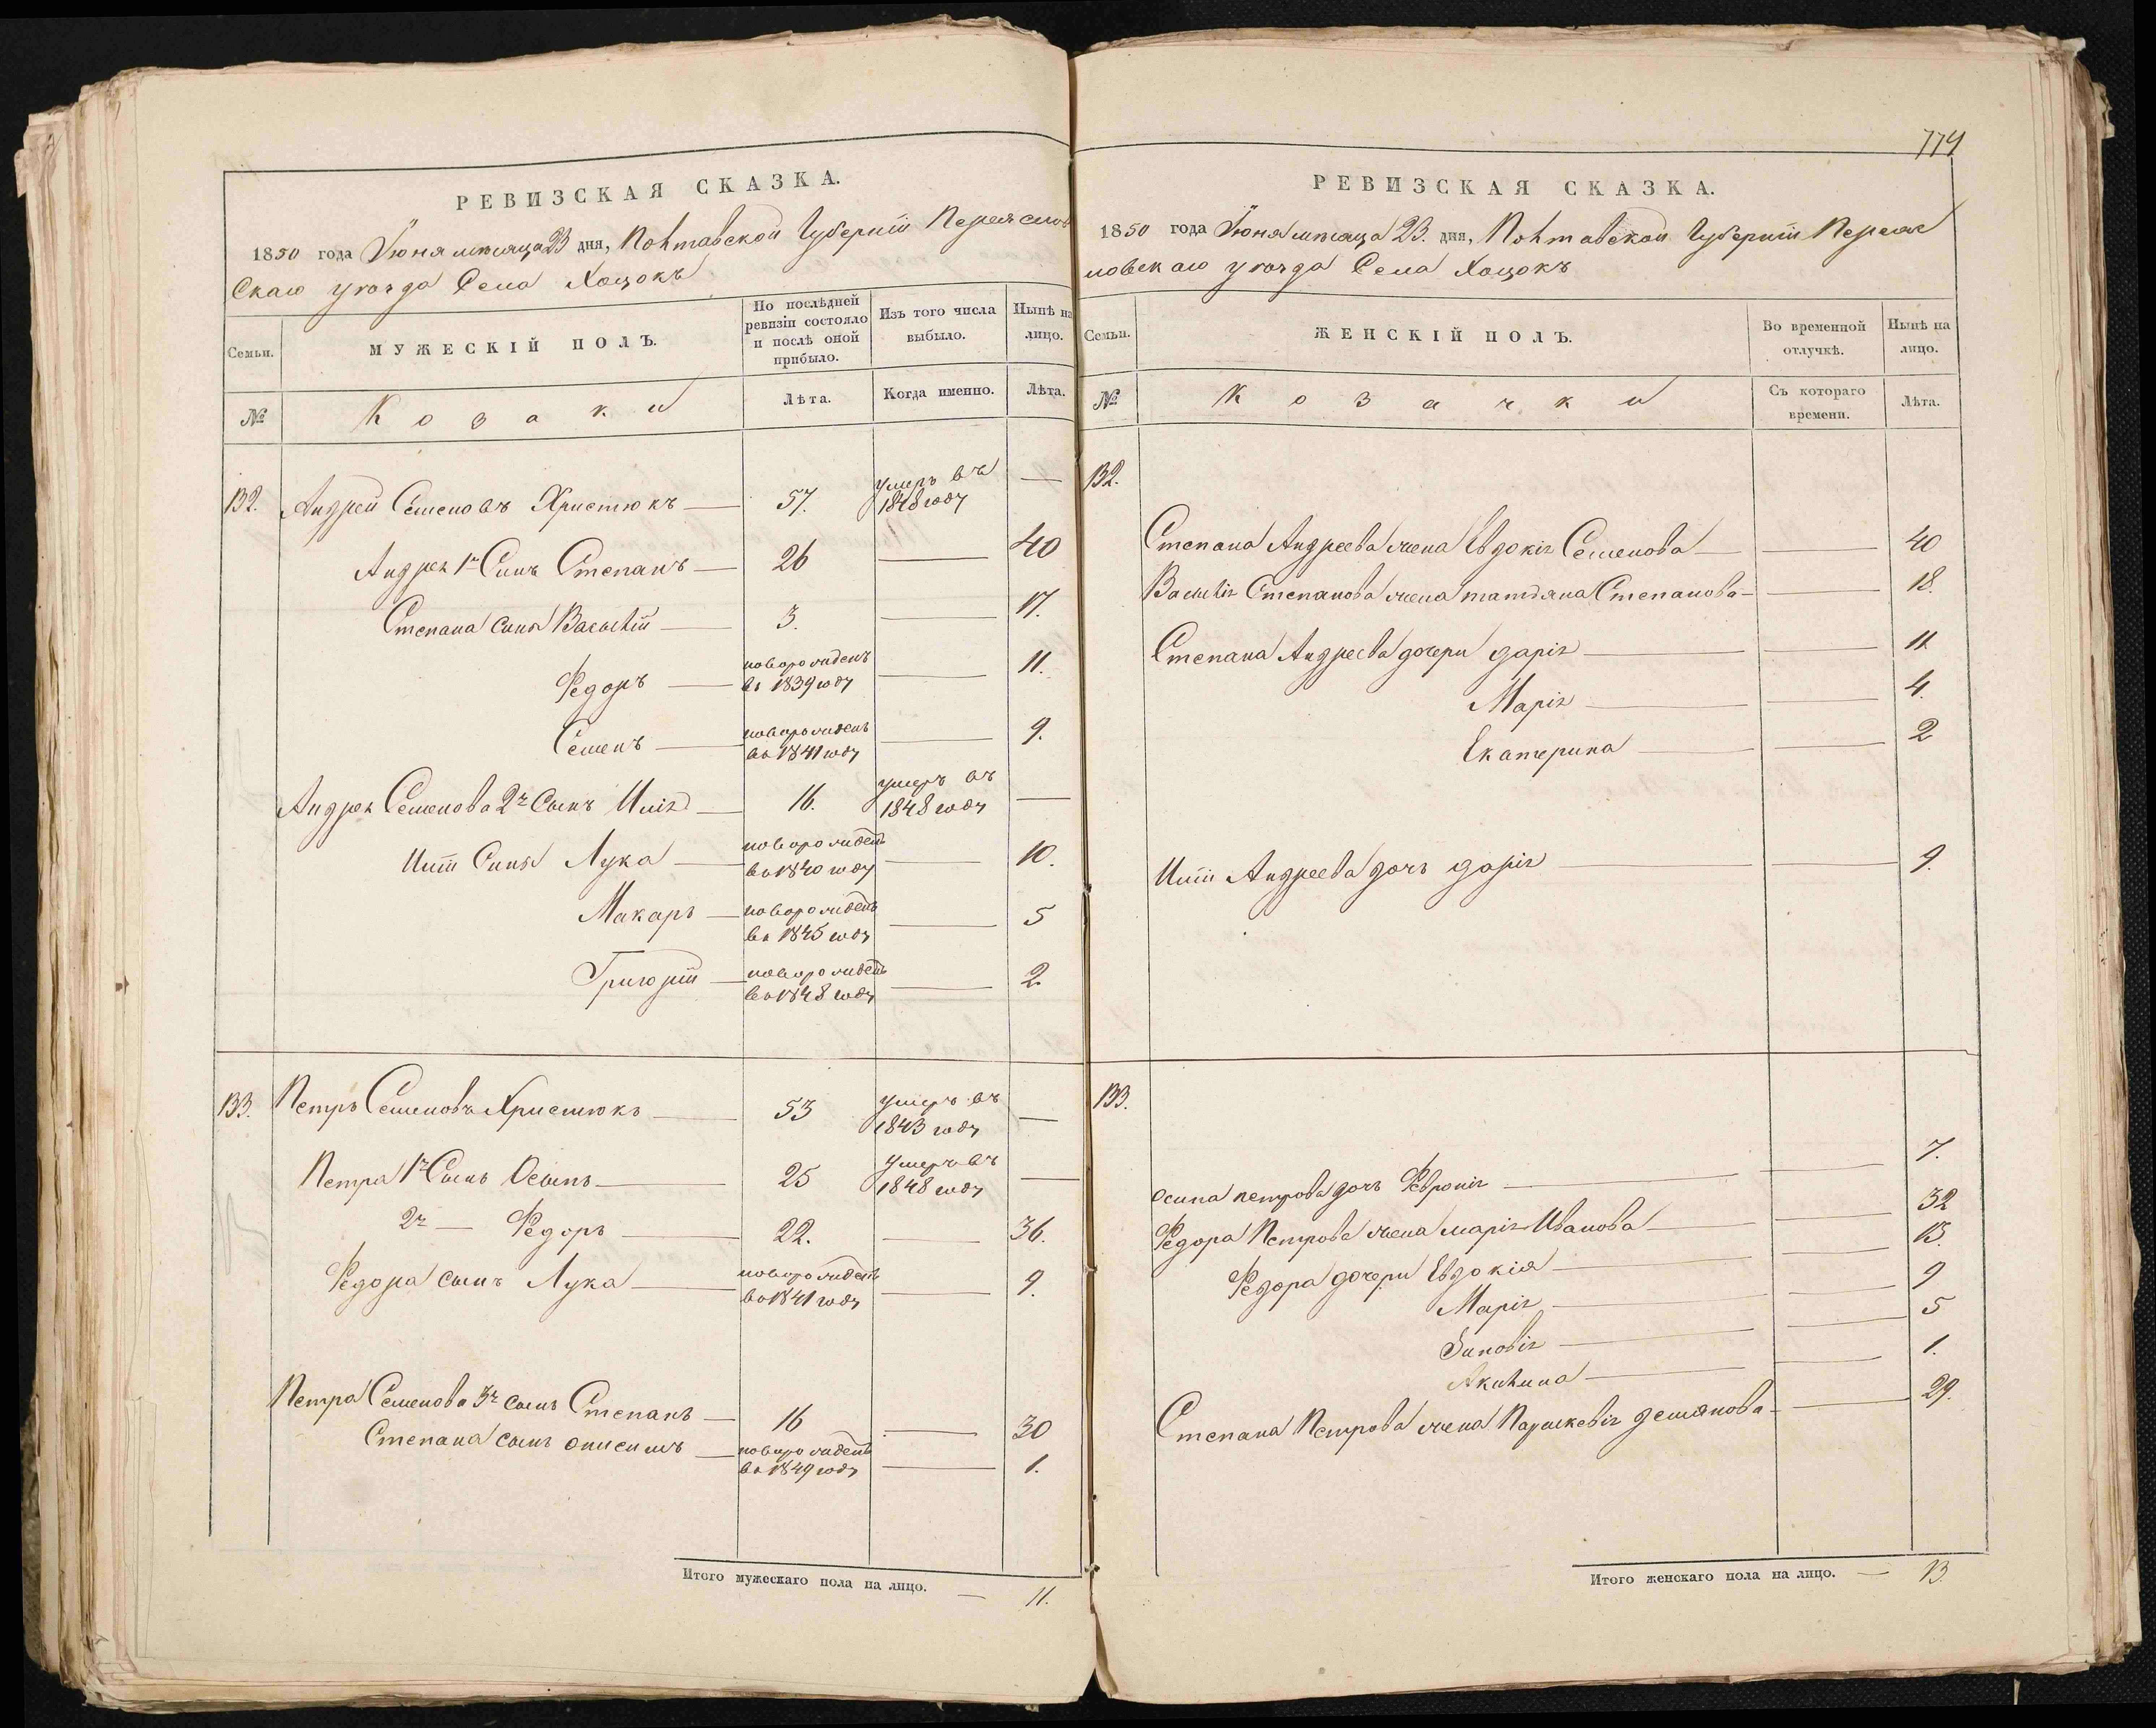 РЕВИЗСКАЯ СКАЗКА.
1850 года Іюня мѣсяца 23 дня, Полтавской Губерніи Переяслов
скаго уѣзда Села Хоцокъ
Семьи.
МУЖЕСКІЙ ПОЛЪ.
По послѣдней ревизіи состояло и послѣ оной прибыло.
Изъ того числа выбыло.
Нынѣ на лицо.
№
Козаки
Лѣта.
Когда именно.
Лѣта.
132. Андрей Семеновъ Христюкъ — 57. умеръ въ 1848 году —
Андрея 1й Сынъ Степанъ — 26 — 40
Степана сынъ Василій — 3. — 17.
Федоръ — новорожденъ въ 1839 году — 11.
Семенъ — новорожденъ въ 1841 году — 9.
Андрея Семенова 2й Сынъ Илія — 16. умеръ въ 1848 году —
Иліи Сынъ Лука — новорожденъ въ 1840 году — 10.
Макаръ — новорожденъ въ 1845 году — 5
Григорій — новорожденъ въ 1848 году — 2
133. Петръ Семеновъ Христюкъ — 53 умеръ въ 1843 году —
Петра 1й Сынъ Осипъ — 25 умеръ въ 1848 году —
2й — Федоръ — 22. — 36.
Федора сынъ Лука — новорожденъ въ 1841 году — 9.
Петра Семенова 3й сынъ Степанъ — 16 — 30
Степана сынъ Онисимъ — новорожденъ въ 1849 году — 1.
Итого мужескаго пола на лицо. — 11.
774
РЕВИЗСКАЯ СКАЗКА.
1850 года Іюня мѣсяца 23. дня, Полтавской Губерніи Переяс
ловскаго уѣзда Села Хоцокъ
Семьи.
ЖЕНСКІЙ ПОЛЪ.
Во временной отлучкѣ.
Нынѣ на лицо.
№
Козачки
Съ котораго времени.
Лѣта.
132.
Степана Андреева жена Евдокія Семенова — — 40
Василія Степанова жена татіяна Степанова — — 18.
Степана Андреева дочери дарія — — 11
Марія — — 4.
Екатерина — — 2
Иліи Андреева дочь дарія — — 9.
133.
Осипа петрова дочь Февронія — — 7.
Федора Петрова жена марія Иванова — — 32
Федора дочери Евдокія — — 13.
Марія — — 9
Зиновія — — 5
Акилина — — 1.
Степана Петрова жена Параскевія демянова — — 29.
Итого женскаго пола на лицо. — 13.